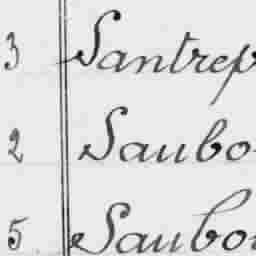 3 Santrep
2 Saubo
5 Saubo